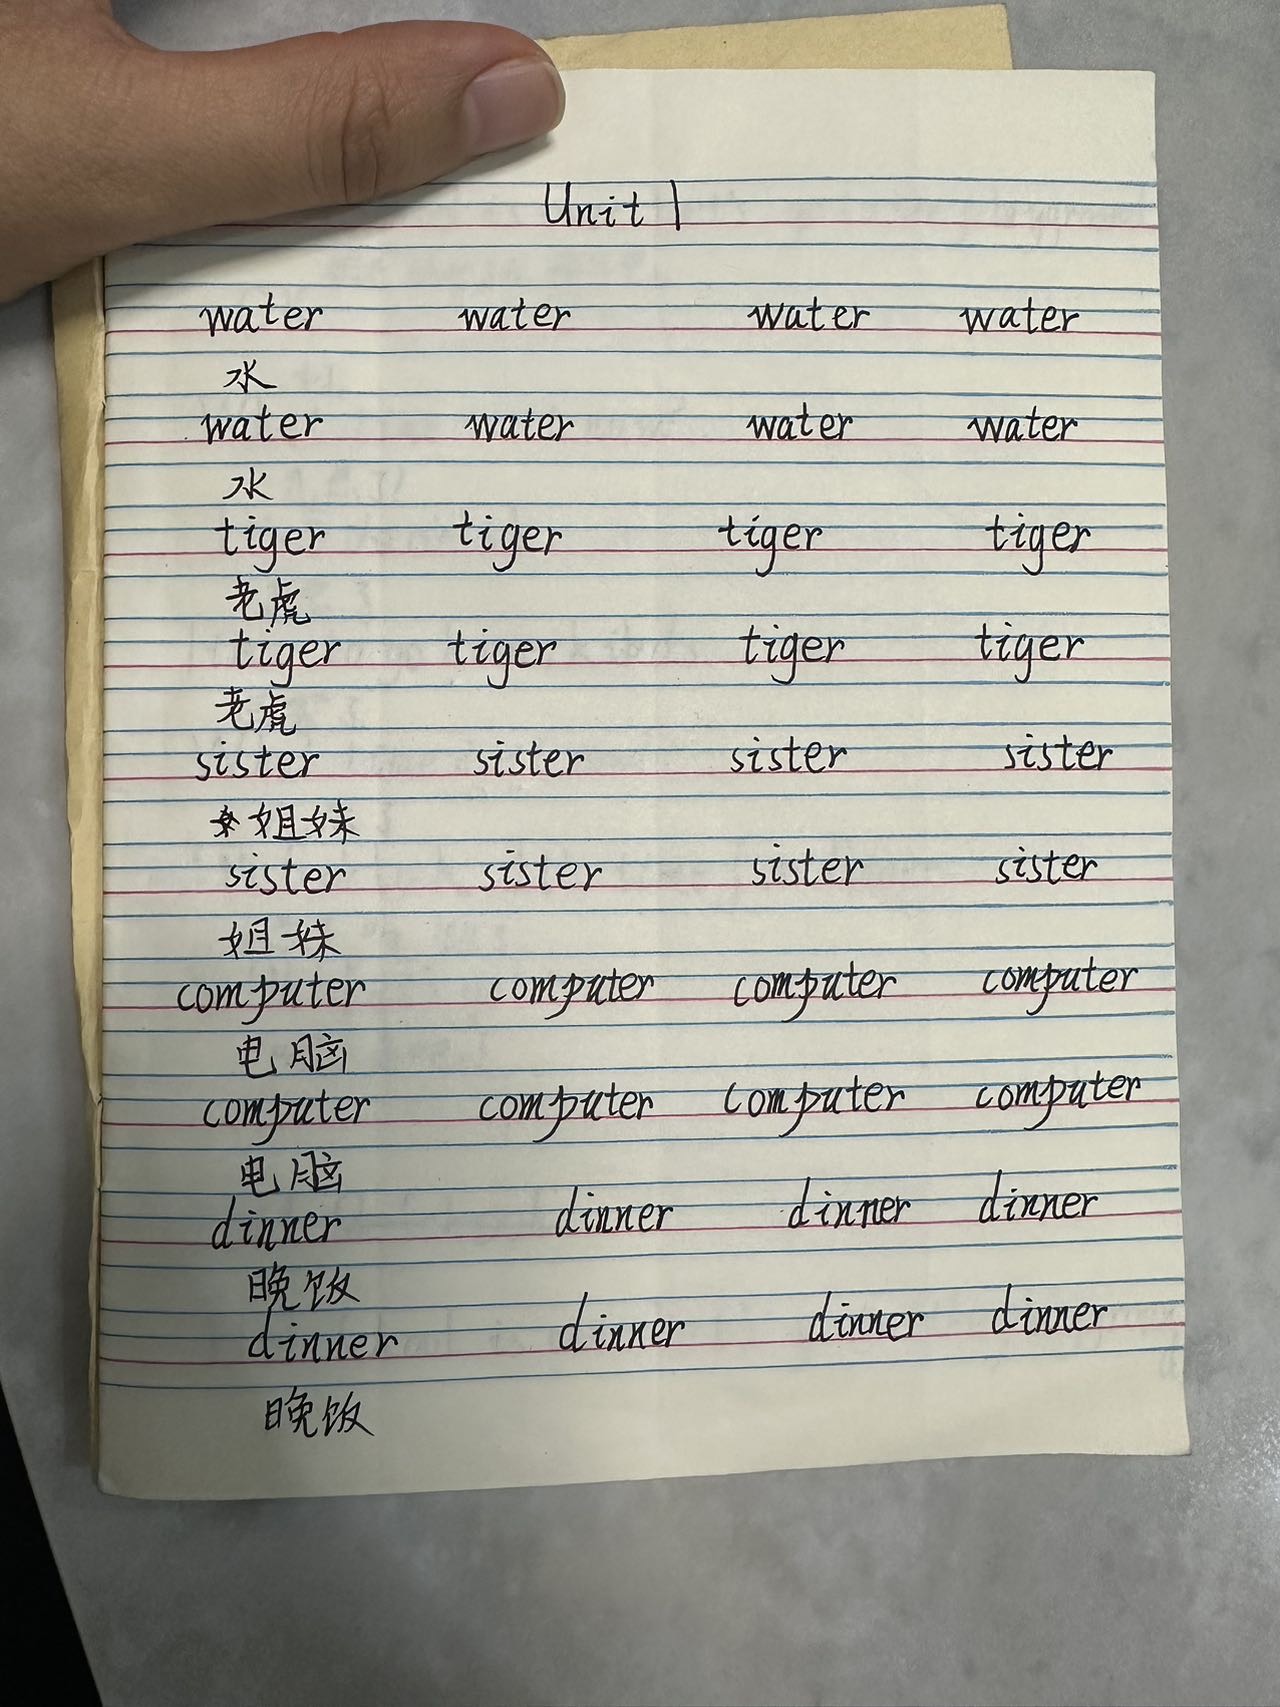 Unit 1
water water water water
水
water water water water
水
tiger tiger tiger tiger
老虎
tiger tiger tiger tiger
老虎
sister sister sister sister
姐妹
sister sister sister sister
姐妹
computer computer computer computer
电脑
computer computer computer computer
电脑
dinner dinner dinner dinner
晚饭
dinner dinner dinner dinner
晚饭